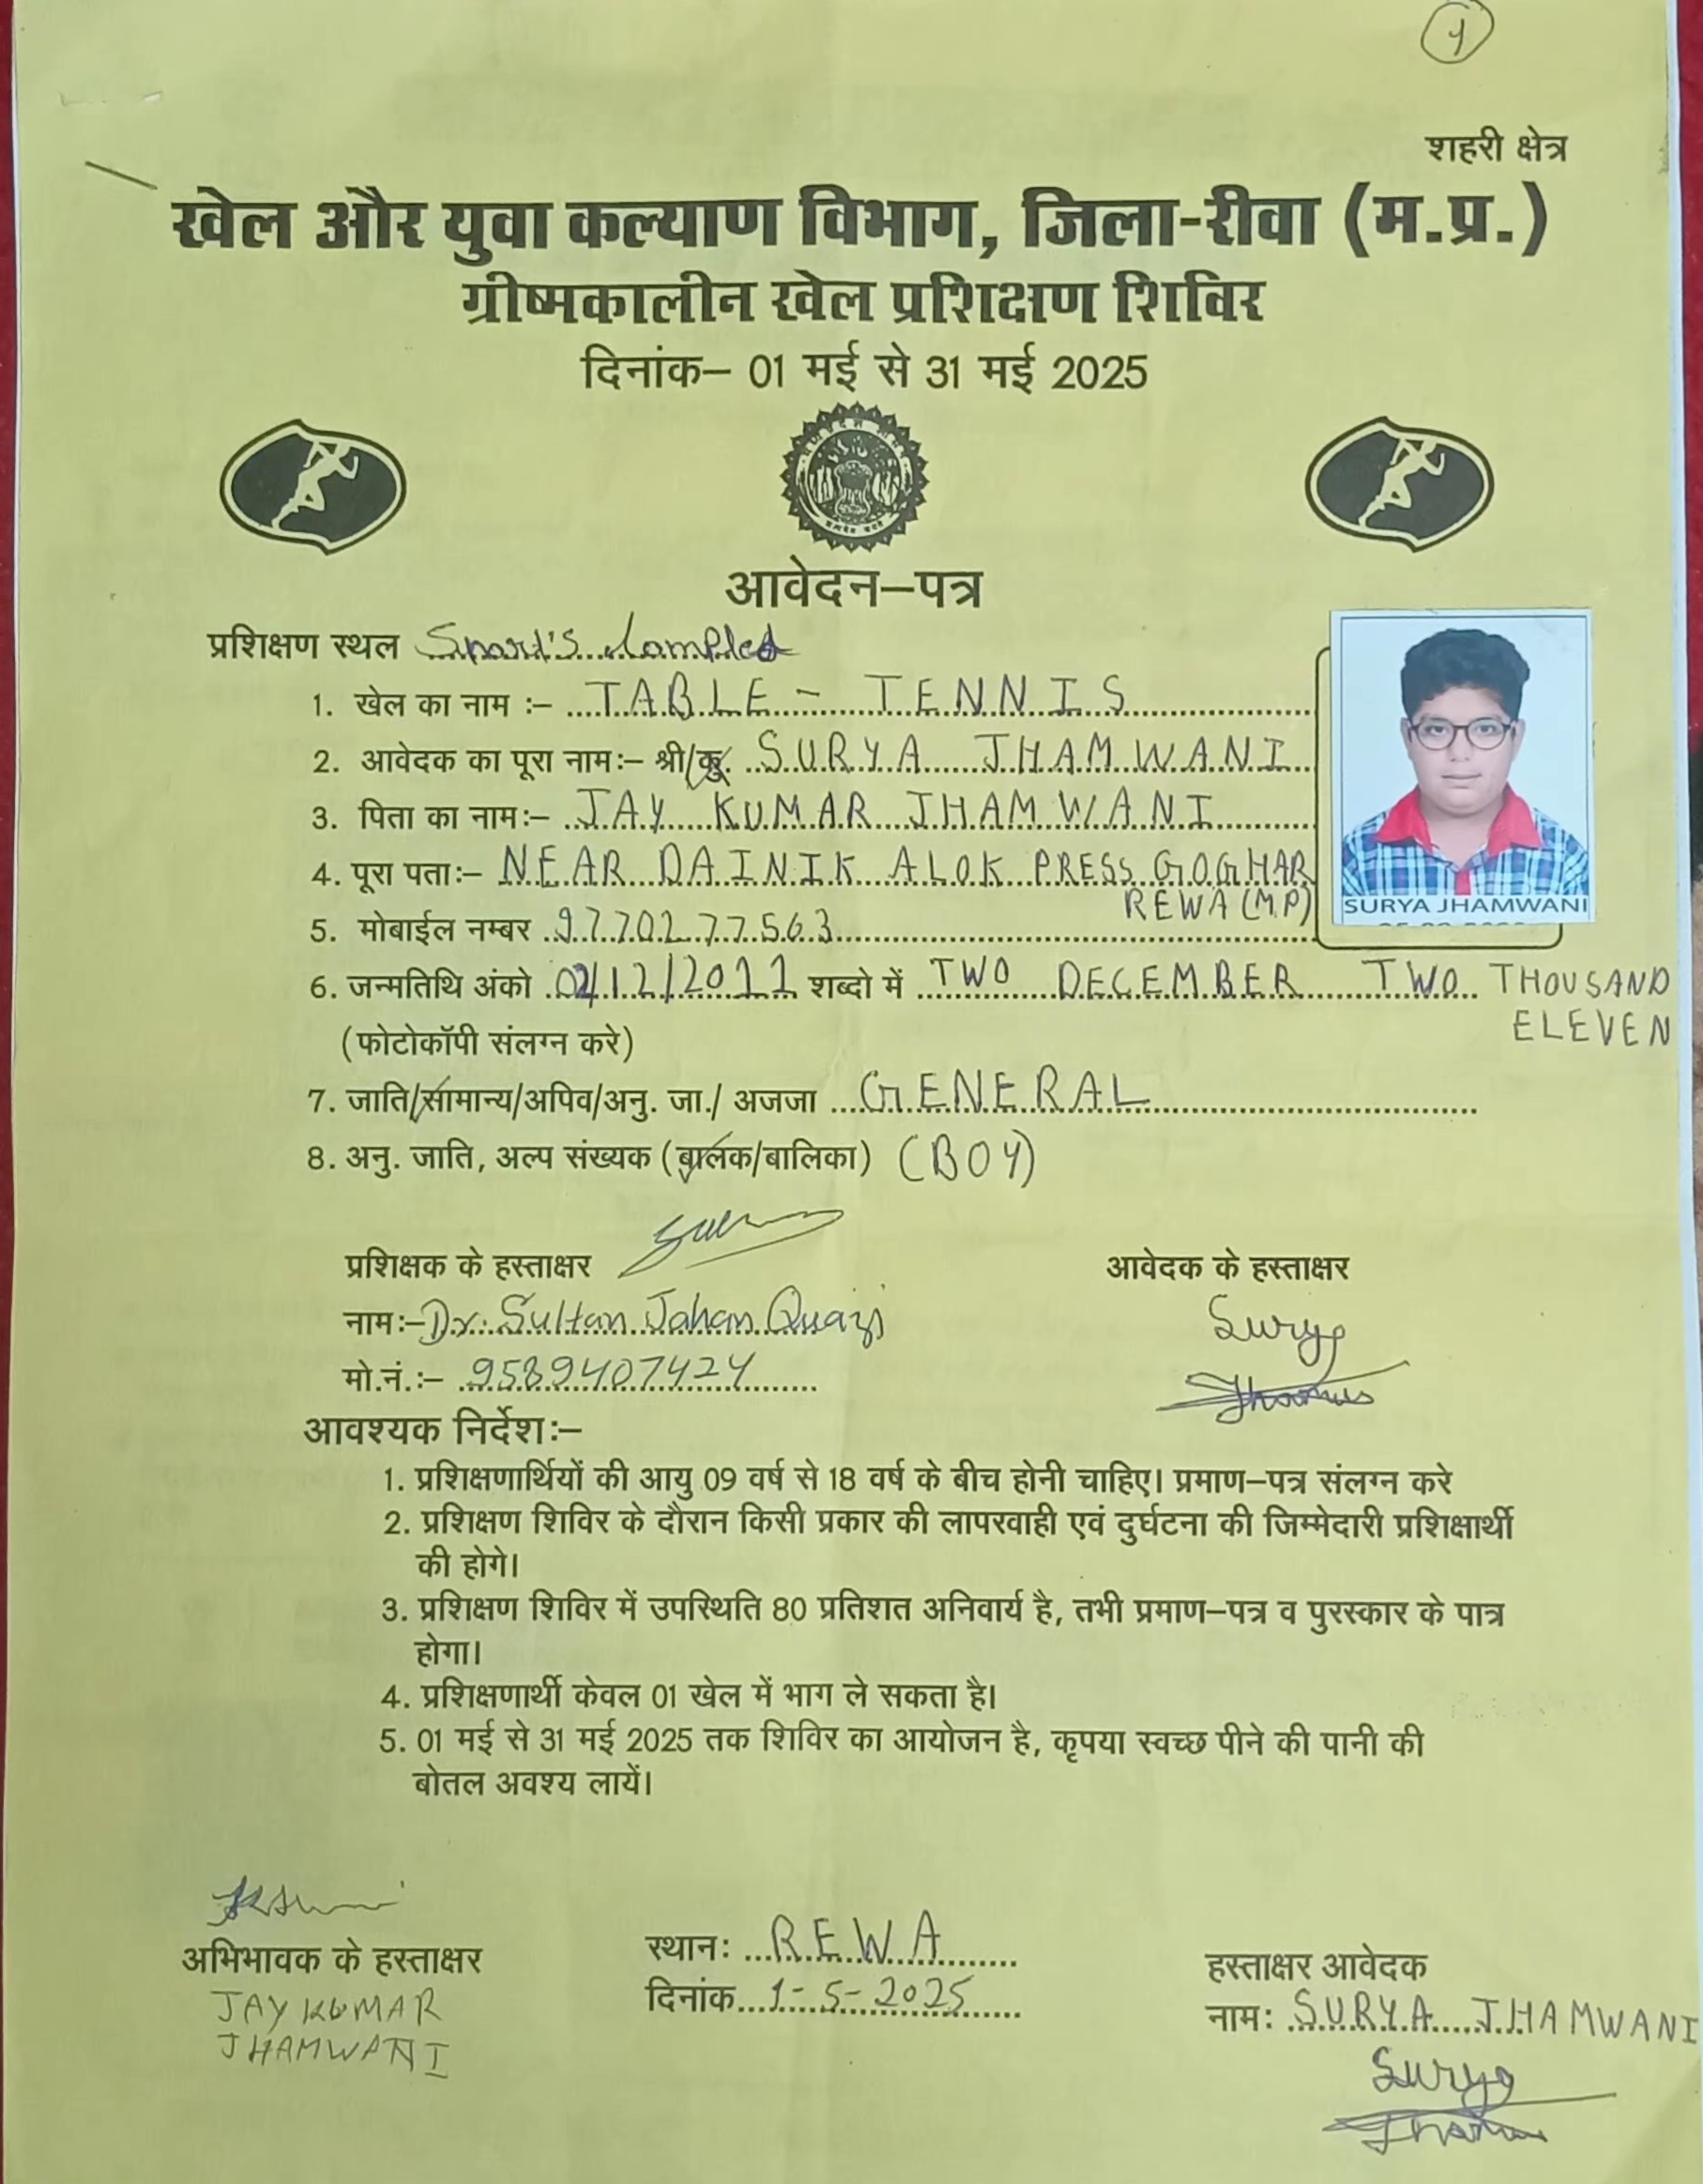 शहरी क्षेत्र
खेल और युवा कल्याण विभाग, जिला-रीवा (म.प्र.)
ग्रीष्मकालीन खेल प्रशिक्षण शिविर
दिनांक– 01 मई से 31 मई 2025
आवेदन–पत्र
प्रशिक्षण स्थल
1. खेल का नाम :– TABLE - TENNIS
2. आवेदक का पूरा नाम:– श्री/कु. SURYA JHAMWANI
3. पिता का नाम:– JAY KUMAR JHAMWANI
4. पूरा पता:– NEAR DAINIK ALOK PRESS GOGHAR
REWA (M.P)
SURYA JHAMWANI
5. मोबाईल नम्बर 9770277563
6. जन्मतिथि अंको 02/12/2011 शब्दो में TWO DECEMBER TWO THOUSAND
ELEVEN
(फोटोकॉपी संलग्न करे)
7. जाति/सामान्य/अपिव/अनु. जा./ अजजा GENERAL
8. अनु. जाति, अल्प संख्यक (बालक/बालिका) (BOY)
प्रशिक्षक के हस्ताक्षर आवेदक के हस्ताक्षर
नाम:– Dr. Sultan Jahan Quazi Surya
मो.नं.:– 9589407424
आवश्यक निर्देश:–
1. प्रशिक्षणार्थियों की आयु 09 वर्ष से 18 वर्ष के बीच होनी चाहिए। प्रमाण–पत्र संलग्न करे
2. प्रशिक्षण शिविर के दौरान किसी प्रकार की लापरवाही एवं दुर्घटना की जिम्मेदारी प्रशिक्षार्थी
की होगे।
3. प्रशिक्षण शिविर में उपस्थिति 80 प्रतिशत अनिवार्य है, तभी प्रमाण–पत्र व पुरस्कार के पात्र
होगा।
4. प्रशिक्षणार्थी केवल 01 खेल में भाग ले सकता है।
5. 01 मई से 31 मई 2025 तक शिविर का आयोजन है, कृपया स्वच्छ पीने की पानी की
बोतल अवश्य लायें।
अभिभावक के हस्ताक्षर
JAY KUMAR
JHAMWANI
स्थान: REWA
दिनांक 1-5-2025
हस्ताक्षर आवेदक
नाम: SURYA JHAMWANI
Surya